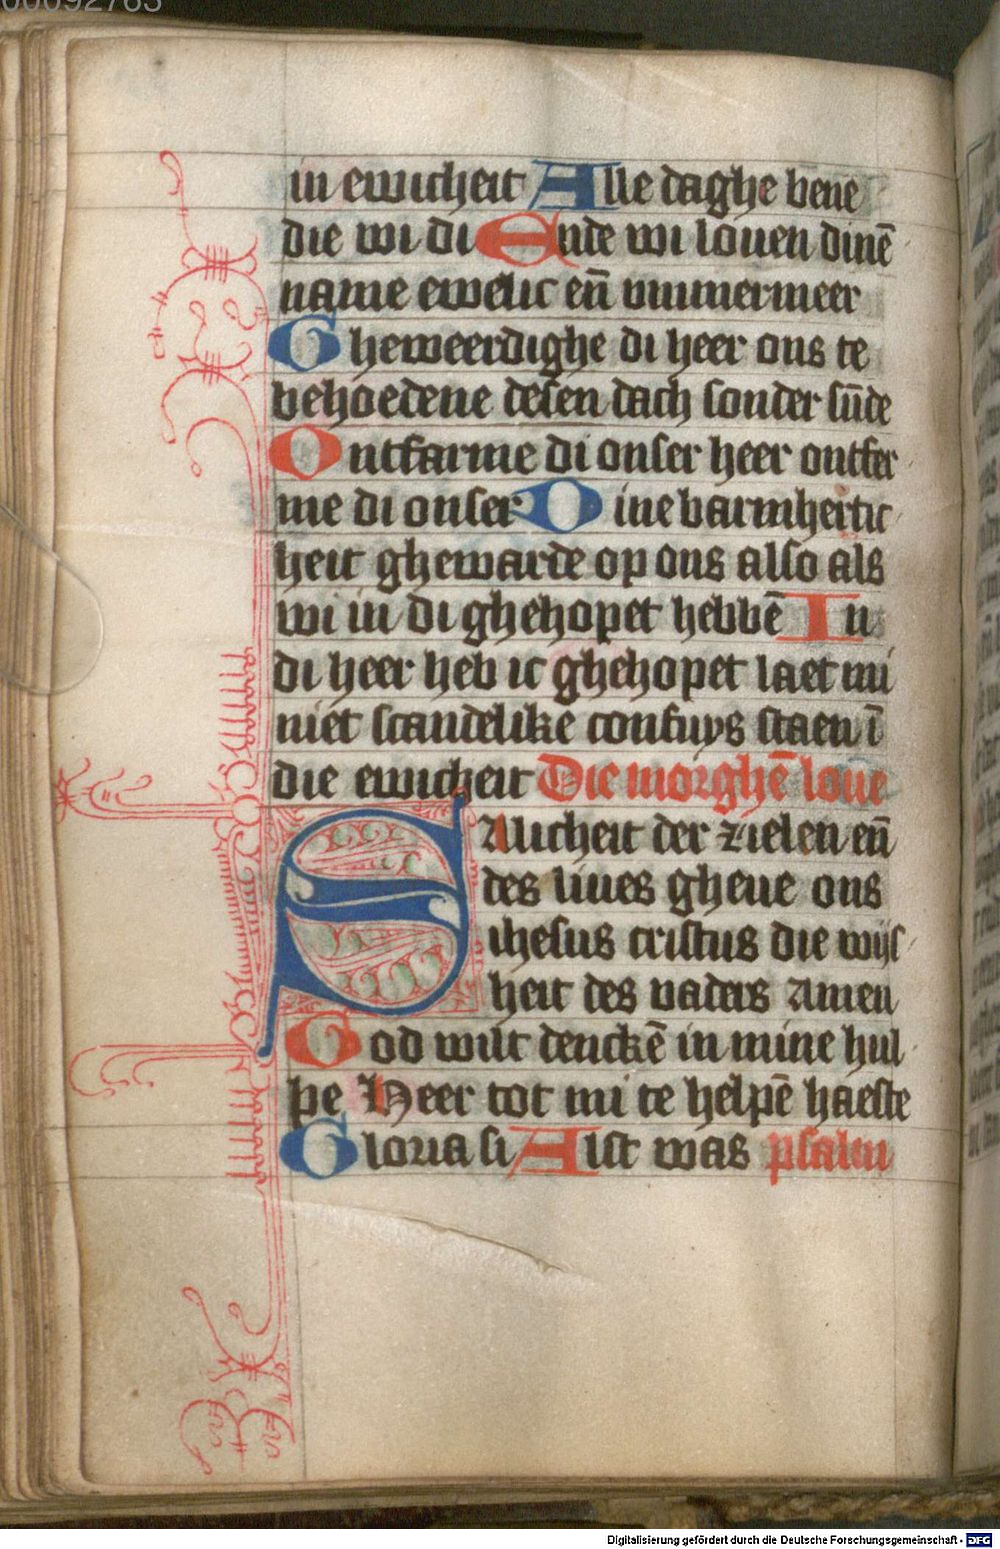 00092783
in ewicheit Alle daghe bene
die wi di Ende wi louen dinē
name ewelic eñ vmmermeer
Gheweerdighe di heer ons te
behoedene desen dach sonder sūde
Ontfarme di onser heer ontfer
me di onser Dine barmhertic
heit ghewarde op ons also als
wi in di ghehopet hebbē In
di heer heb ic ghehopet laet mi
niet scandelike confuys staen ī
die ewicheit Die morghē loue
Salicheit der zielen eñ
des liues gheue ons
ihesus cristus die wijs
heit des vaders Amen
God wilt denckē in mine hul
pe Heer tot mi te helpē haeste
Gloria si Alst was psalm
Digitalisierung gefördert durch die Deutsche Forschungsgemeinschaft - DFG